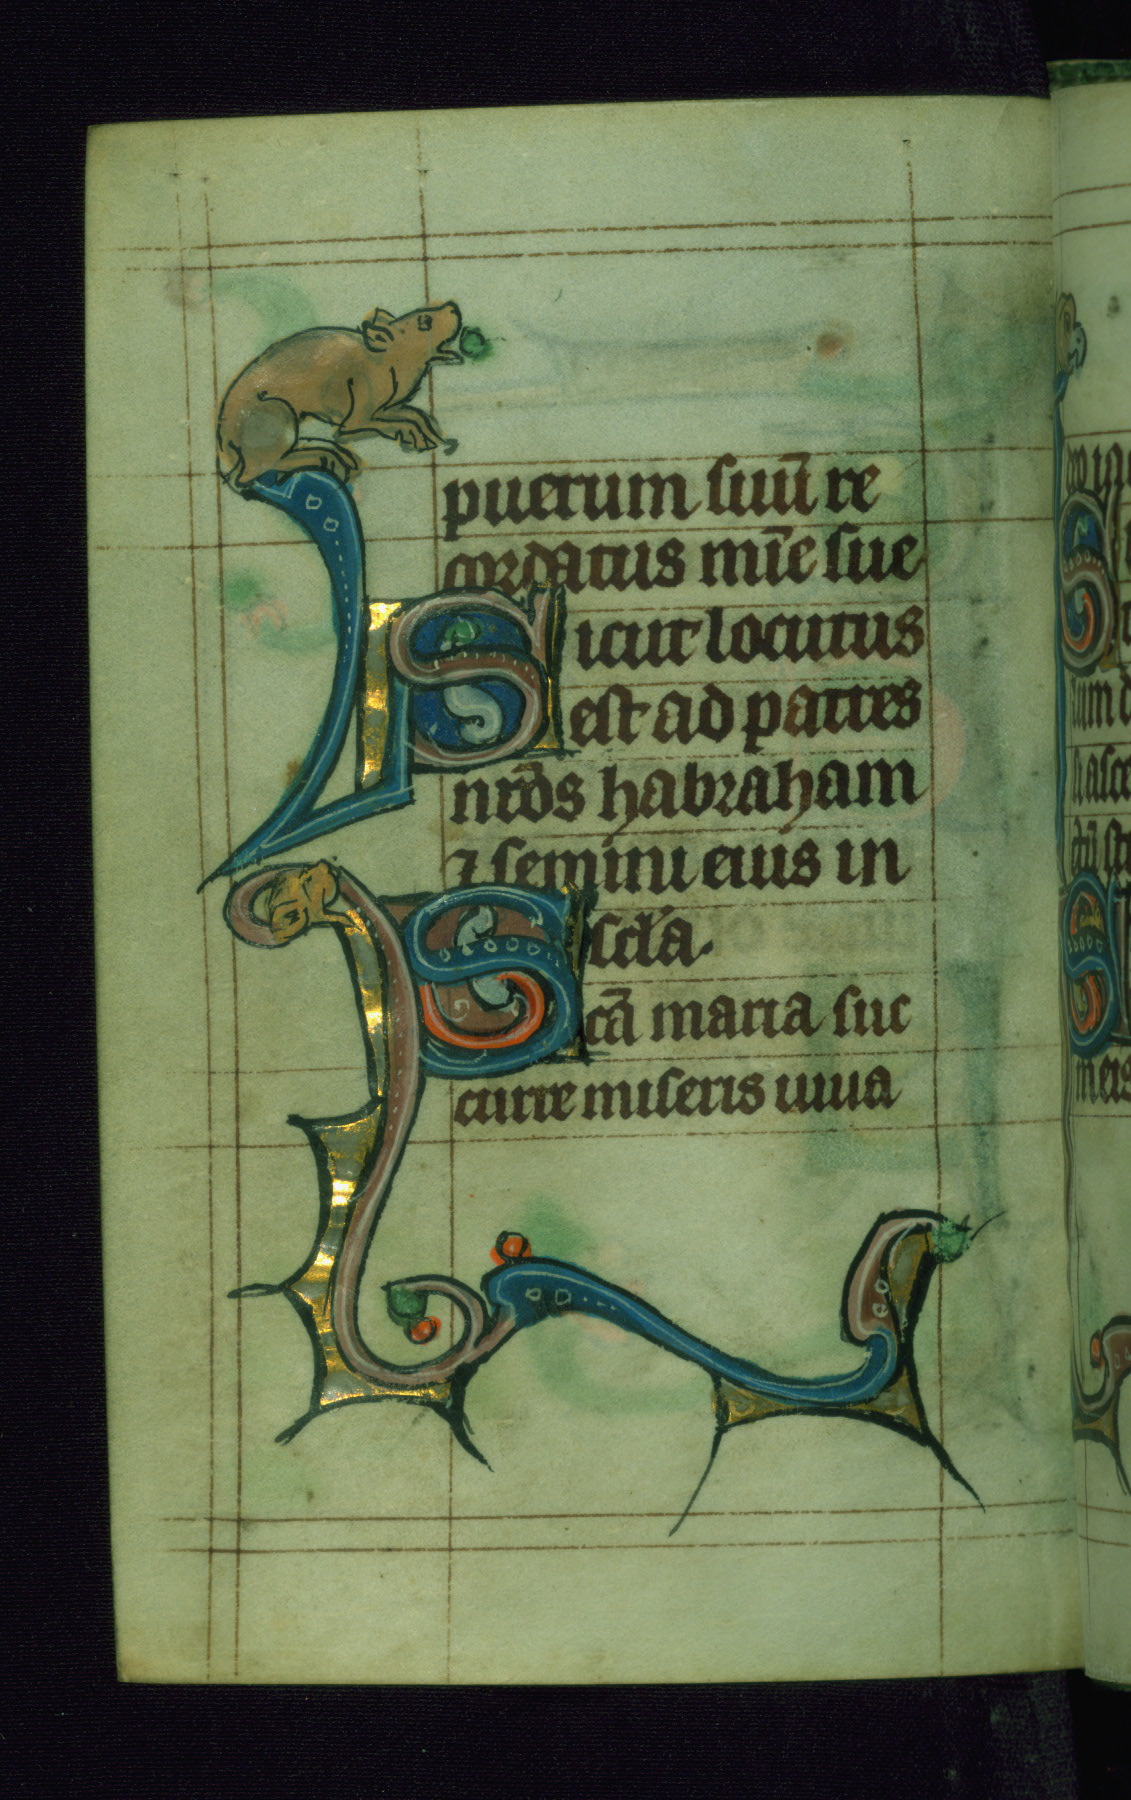 puerum suū re
cordatus mīe sue
Sicut locutus
est ad patres
nr̄os habraham
⁊ semini eius in
scl̄a.
Scā maria suc
curre miseris iuua